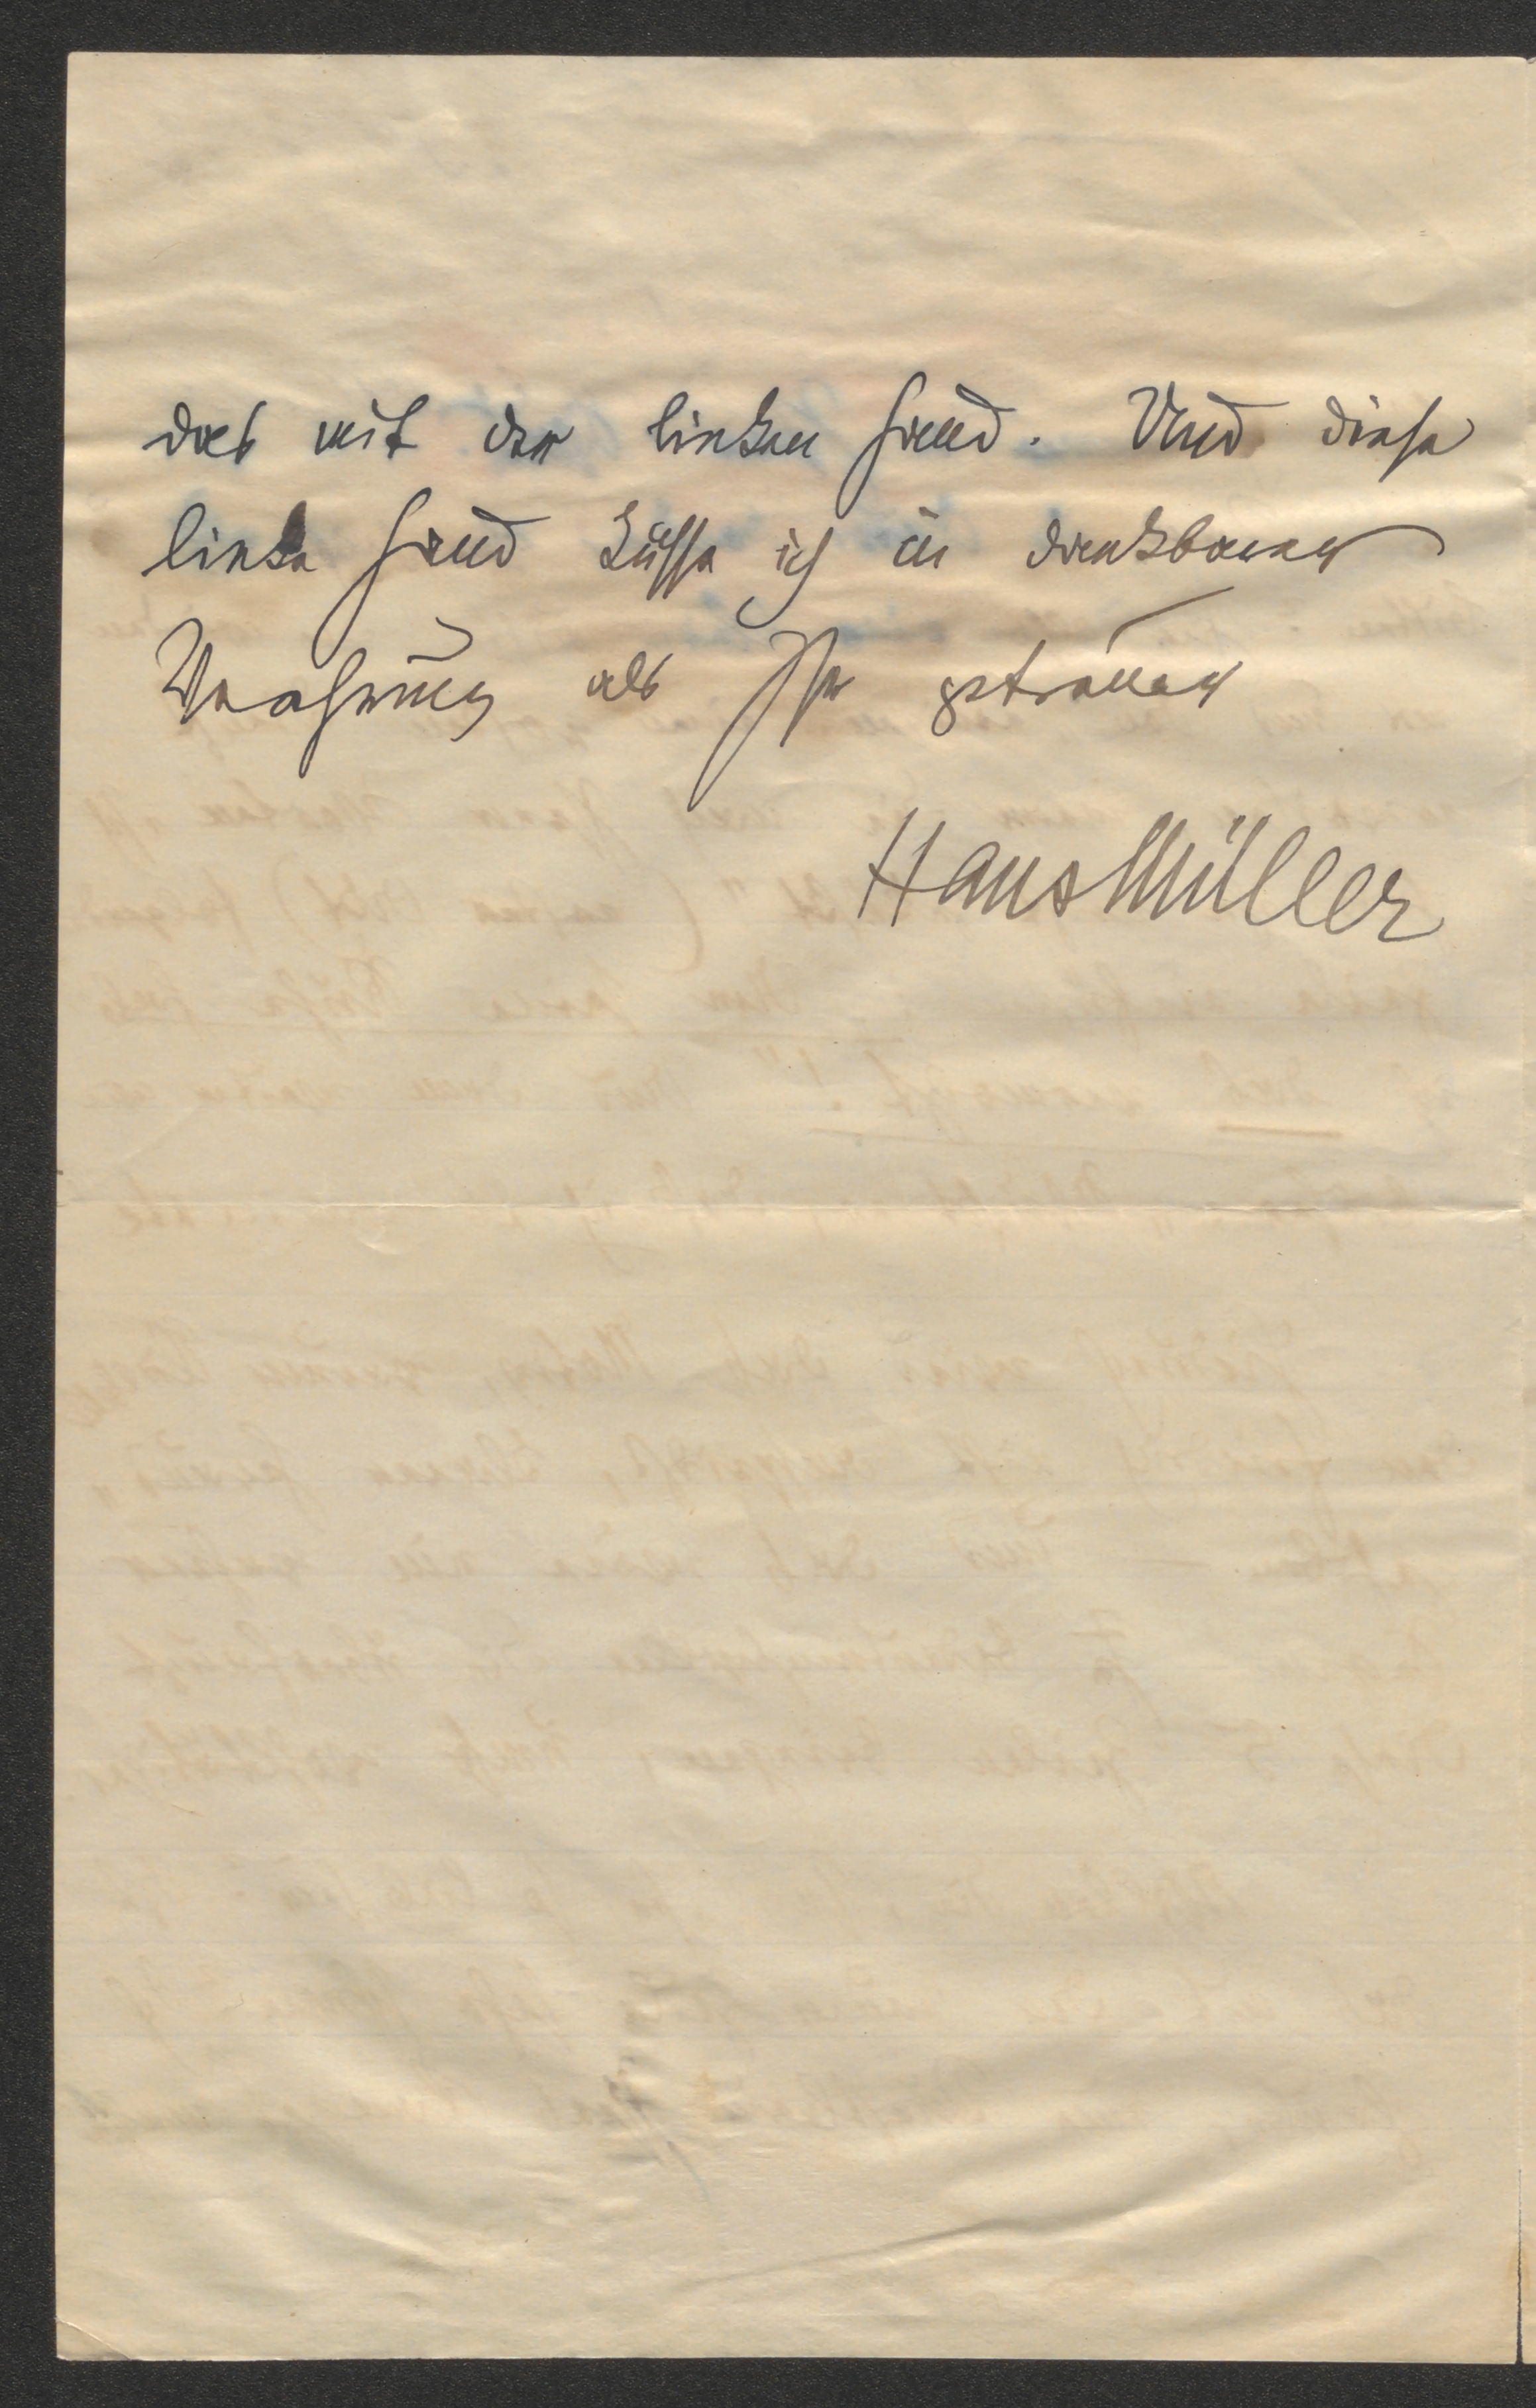 das mit der linken Hand. Und diese
linke Hand küsse ich in dankbarer
Verehrung als Ihr getreuer
Hans Müller